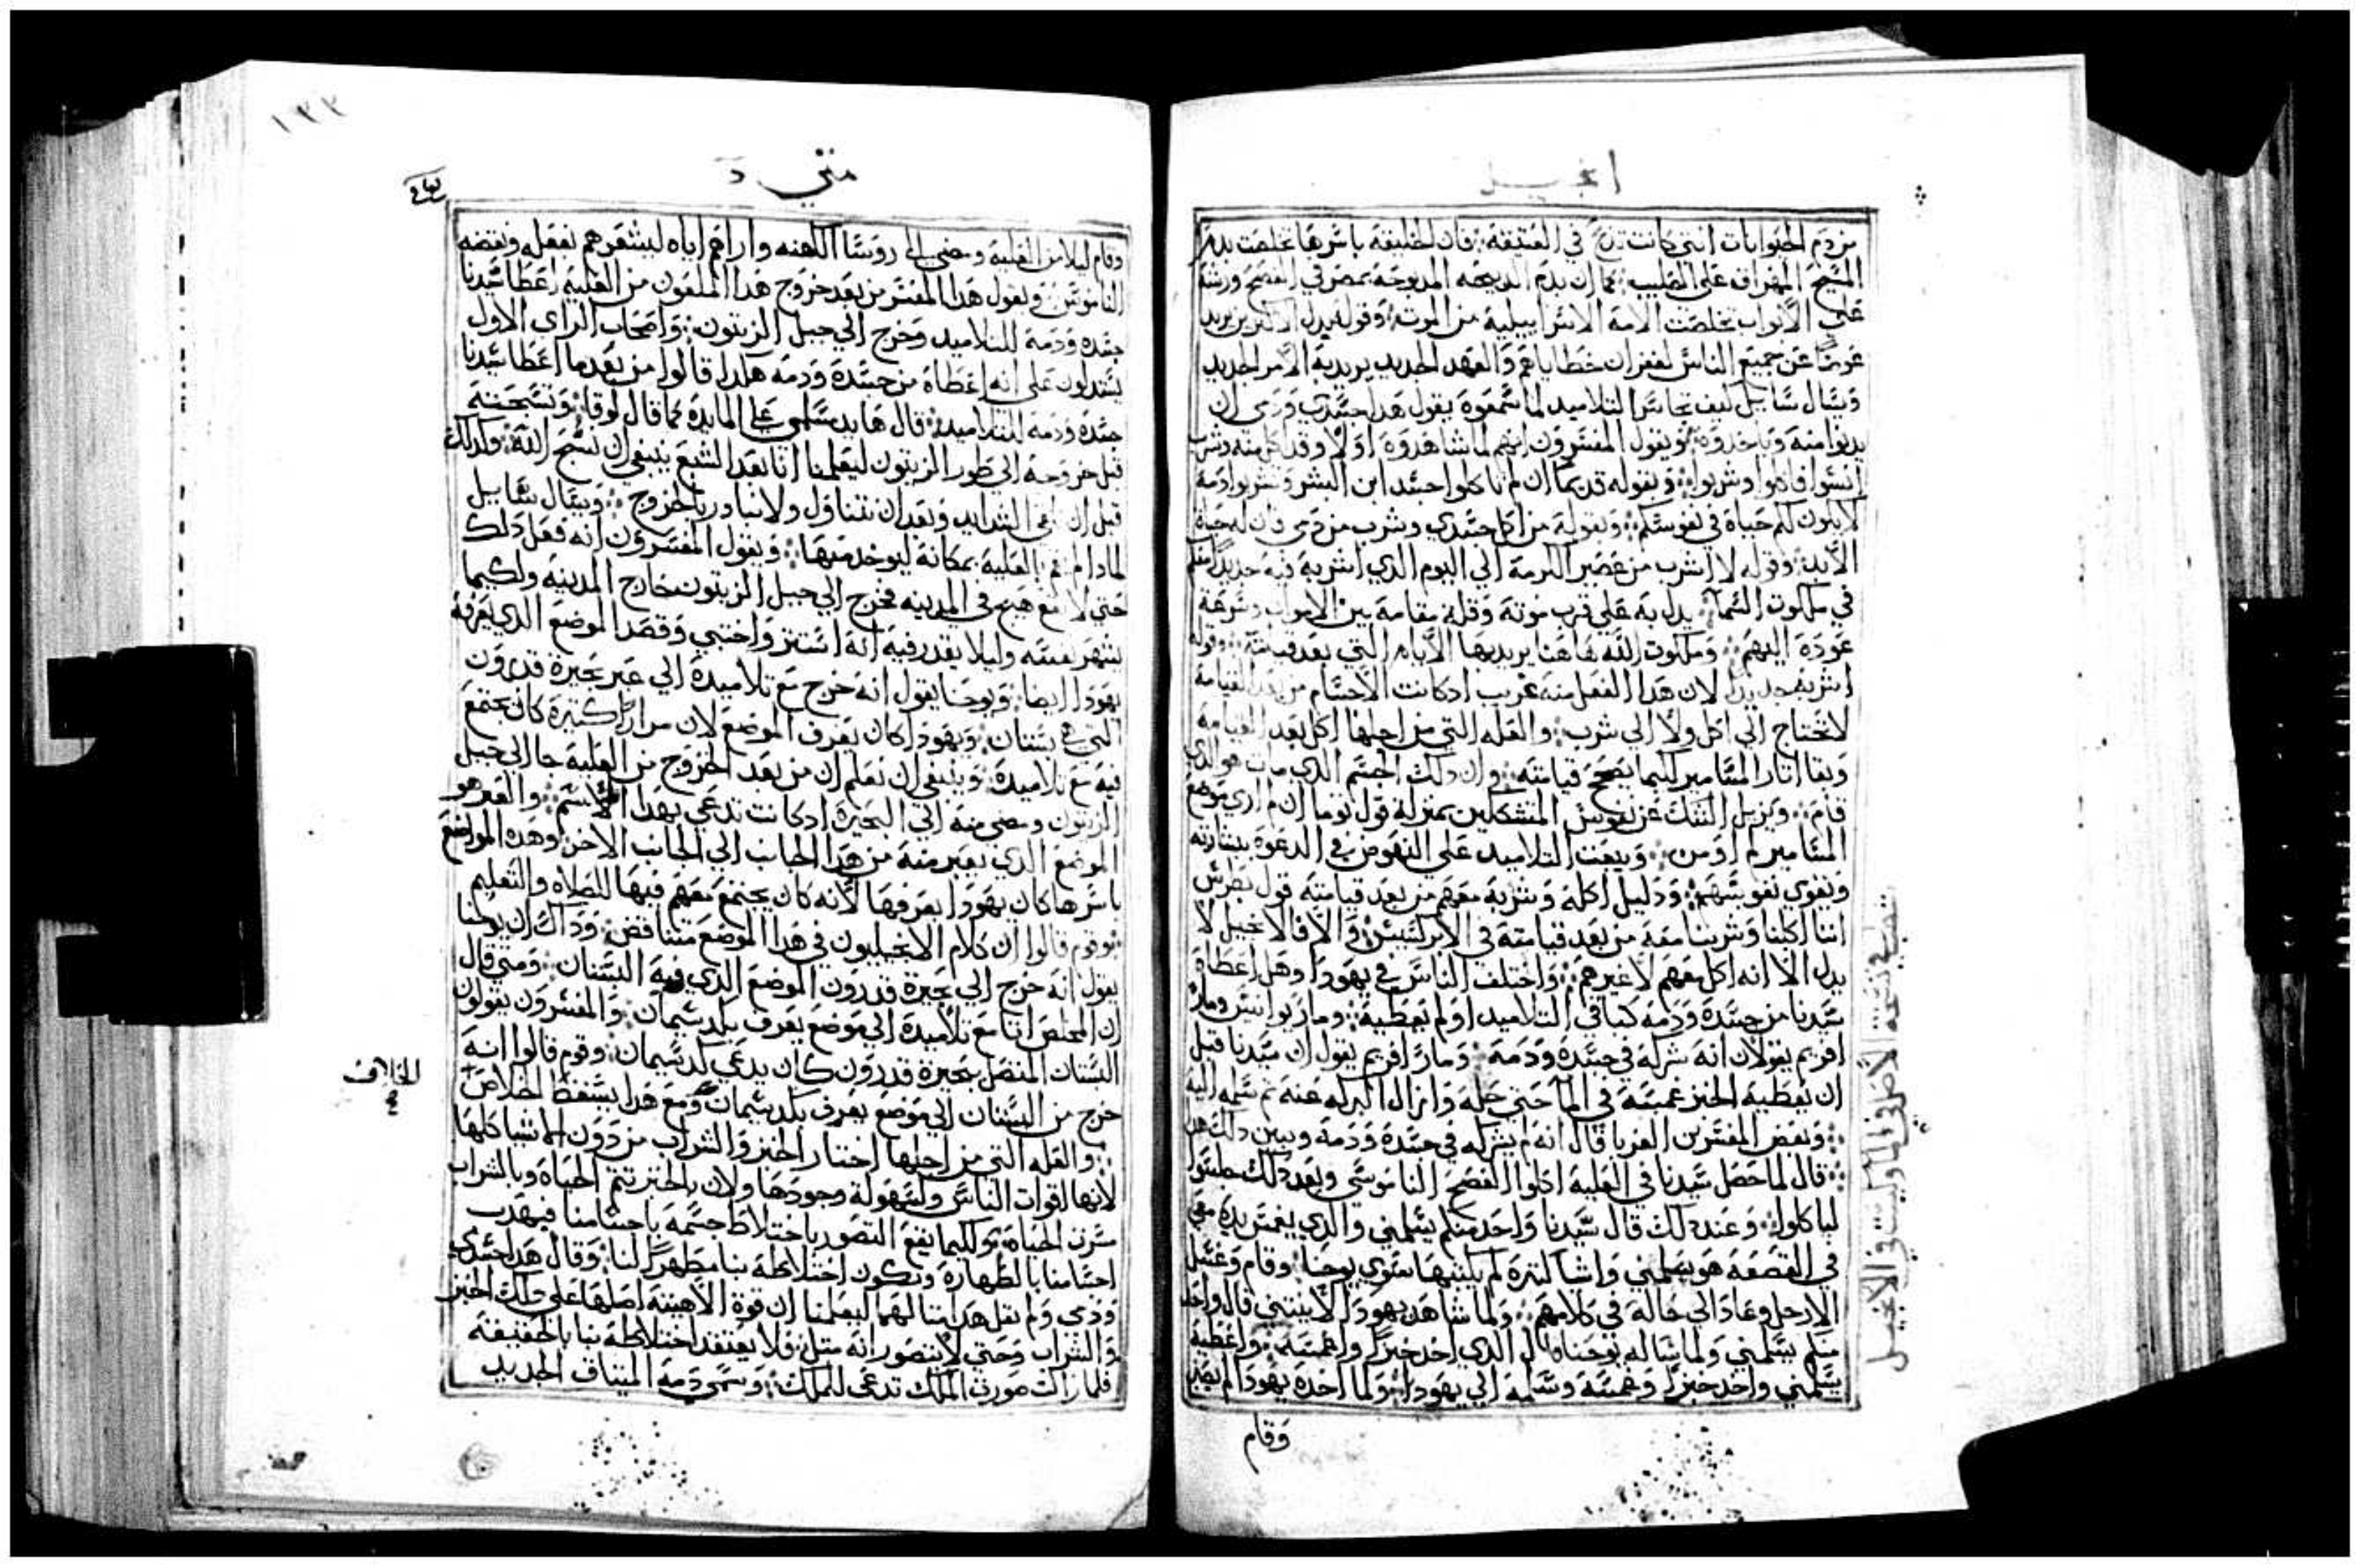 انجيل
من دم الحيوانات التي كانت تذبح في العتيقة فان الخليقة باسرها تخلصت بدم
المسيح المهراق على الصليب كما ان بدم الدبيحه المدبوحة بمصر في الفصح ورشه
علي الأبواب تخلصت الامة الاسراييلية من الموت وقوله بدل الاكثرين يريد
عوضا عن جميع الناس لغفران خطاياهم والعهد الجديد يريد به الأمر الجديد
ويسال سايل كيف تجاسر التلاميد لما سمعوه يقول هدا جسدي ودمي ان
يدنوا منه وياخدوه ويقول المفسرون انهم لما شاهدوه اولا وقد اكل منه وشرب
انسوا فاكلوا وشربوا وبقوله قديما ان لم تاكلوا جسد ابن البشر وتشربوا دمه
لا يكون لكم حياة في نفوسكم وبقوله من اكل جسدي وشرب من دمي فان له حياة
الأبد وقوله لا اشرب من عصير الكرمة الي اليوم الدي اشربه فيه جديدا معكم
في ملكوت السما يدل به علي قرب موته وقلة مقامه بين الاموات وسرعة
عوده اليهم وملكوت الله هاهنا يريد بها الأيام التي بعد قيامته وقوله
اشربه جديدا لان هدا الفعل منه غريب ادكانت الأجسام من بعد القيامة
لا تحتاج الي اكل ولا الي شرب والعله التي من اجلها اكل بعد القيامة
وبقا اثار المسامير كيما يصحح قيامته وان دلك الجسم الدي مات هو الدي
قام ويزيل الشك عن نفوس المتشككين بمنزلة قول توما ان لم اري موضع
المسامير لم اومن ويبعث التلاميد علي النهوض في الدعوة ببشارته
وتقوي نفوسهم ودليل اكله وشربه معهم من بعد قيامته قول بطرس
اننا اكلنا وشربنا معه من بعد قيامته في الابركسيس والا فالانجيل لا
يدل الا انه اكل معهم لا غيرهم واختلف الناس في يهودا وهل اعطاه
سيدنا من جسده ودمه كباقي التلاميد او لم يعطيه ومار يوانيس ومار
افريم يقولان انه شركه في جسده ودمه ومار افريم يقول ان سيدنا قبل
ان يعطيه الخبز غمسه في الما حتي حله وازال البركه عنه ثم سلمه اليه
وبعض المفسرين الغربا قال انه لم يشركه في جسده ودمه ويبين دلك هكدا
قال لما حصل سيدنا في العلية اكلوا الفصح الناموسي وبعد دلك جلسوا
لياكلوا وعند دلك قال سيدنا واحد منكم يسلمني والدي يغمس يده معي
في القصعه هو يسلمني واشيا كثيرة لم يكتبها سوي يوحنا وقام وغسل
الارجل وعاد الي حاله في كلامهم ولما شاهد يهودا لا ينثني قال واحد
منكم يسلمني ولما ساله يوحنا قال الدي اخد خبزا واغمسه واعطيه
يسلمني واخد خبزا وغمسه وسلمه الي يهودا ولما اخده يهودا لم يصبر
وقام
متي
وقام ليلا من العلية ومضي الي روسا الكهنه واراهم اياه ليشعرهم بفعله ونقضه
الناموس ويقول هدا المفسر من بعد خروج هدا الملعون من العلية اعطا سيدنا
جسده ودمه للتلاميد وخرج الي جبل الزيتون واصحاب الراي الاول
يستدلون علي انه اعطاه من جسده ودمه هكدا قالوا من بعد ما اعطا سيدنا
جسده ودمه للتلاميد قال ها يد مسلمي علي المايدة كما قال لوقا وتسبحته
قبل خروجه الي طور الزيتون ليعلمنا انا بعد الشبع ينبغي ان نسبح الله وكدلك
قبل ان وبعد ان نتناول ولا نبادر بالخروج ويسال سايل
لمادا لم يقم بالعلية بمكانه ليوخد منها ويقول المفسرون انه فعل دلك
حتي لا يقع هيج في المدينه فخرج الي جبل الزيتون خارج المدينه ولكيما
يشهر نفسه وليلا يقدر فيه انه استتر واختبي وقصد الموضع الدي يعرفه
يهودا ايضا ويوحنا يقول انه خرج مع تلاميده الي عبر بحيرة قدرون
التي هي بستان ويهودا كان يعرف الموضع لان مرارا كثيرة كان يجتمع
فيه مع تلاميده وينبغي ان نعلم ان من بعد الخروج من العلية جا الي جبل
الزيتون ومضي منه الي البحيرة ادكانت تدعي بهدا الاسم والعبر هو
الموضع الدي يعبر منه من هدا الجانب الي الجانب الاخر وهده المواضع
باسرها كان يهودا يعرفها لانه كان يجتمع معهم فيها للصلاه والتعليم
وقوم قالوا ان كلام الانجيليون في هدا الموضع متناقض ودلك ان يوحنا
يقول انه خرج الي بحيرة قدرون الموضع الدي فيه البستان ومتي قال
ان المخلص اتا مع تلاميده الي موضع يعرف بكدسيمان والمفسرون يقولون
البستان المتصل ببحيرة قدرون كان يدعي كدسيمان وقوم قالوا انه
خرج من البستان الي موضع يعرف بكدسيمان ومع هدا يسقط الخلاف
الخلاف
والعله التي من اجلها اختار الخبز والشراب من دون الاشيا كلها
لانها اقوات الناس ولسهولة وجودها ولان بالخبز تتم الحياة وبالشراب
سرت الحياة ولكيما يقع التصور باختلاط جسمه باجسامنا فيهدب
اجسامنا بالطهارة ويكون اختلاطه بنا مطهرا لنا وقال هدا جسدي
ودمي ولم يقل هدا ليعلمنا ان قوة الاهيته احلها علي دلك الخبز
والشراب وحتي لا يتصور انه مثل فلا يعتقد اختلاطه بنا بالحقيقة
فلما زالت صورة الملك تدعي للملك وسمي دمه الميتاق الجديد